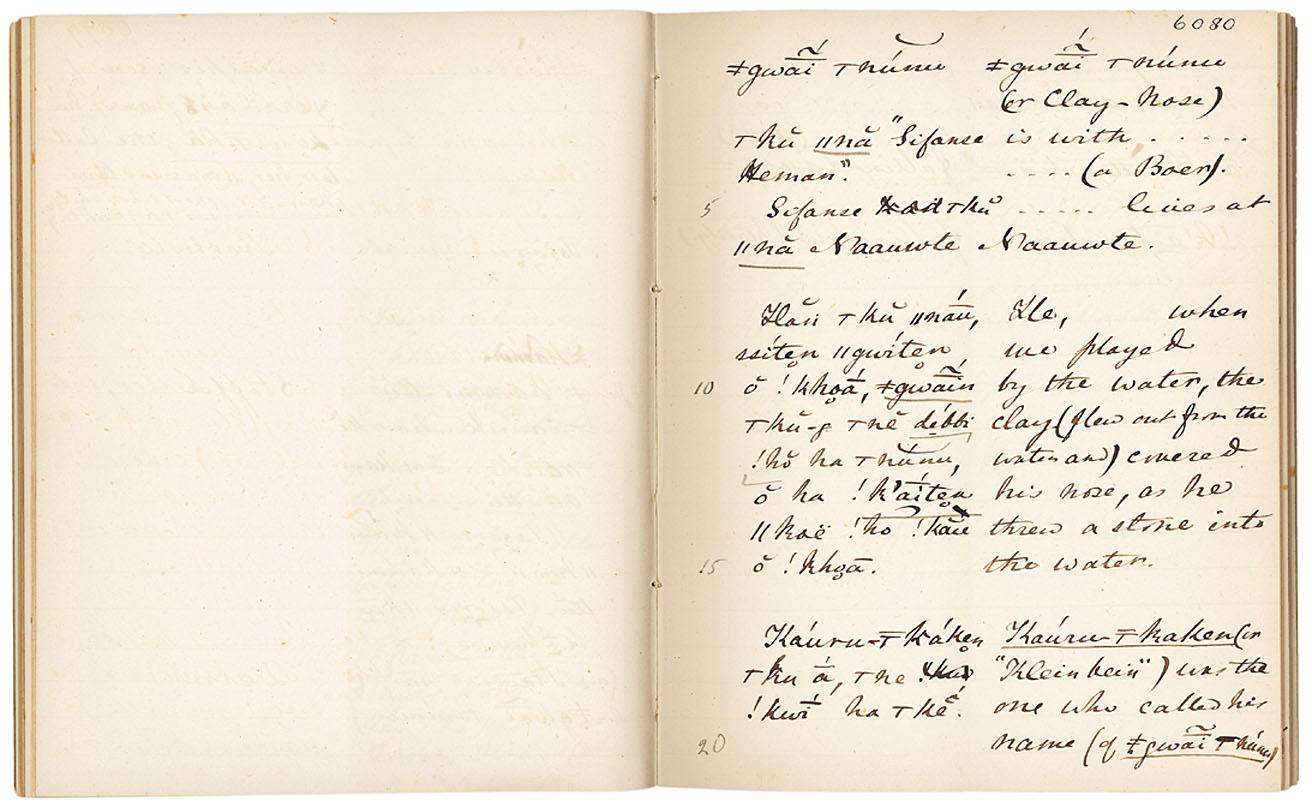 6080
ǂgwā̃í ͳnŭ́nu ǂgwā̃í ͳnúnu
(or Clay-Nose)
ͳkŭ ǁnă "Sifanse is with . . . . .
Heman". . . . . (a Boer).
5 Sifanse ͳkŭ . . . . . lives at
ǁnă Naauwte Naauwte.
Hăń ͳkŭ ǁnáu, He, when
ssíten ǁgwíten, we played
10 ŏ !khọā́, ǂgwā̃íń by the water, the
ͳkŭ-g ͳnĕ débbi clay (flew out from the
!hŏ ha ͳnŭ́nu, water and) covered
ŏ ha !k'aíten his nose, as he
ǁkoë !ho !kāū threw a stone into
15 ŏ !khọā. the water.
Káuru-ͳkáken Kaúru-ͳkaken (or
ͳku ā́, ͳne "Kleinbein") was the
!kwī́ ha ͳkḗ. one who called his
20 name (of ǂgwā̃í ͳnúnu)